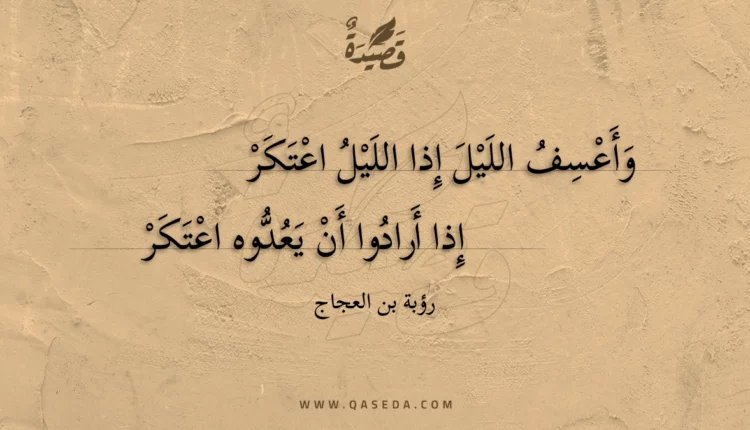 قَصِيدَةٌ
وَأَعْسِفُ اللَيْلَ إِذا اللَيْلُ اعْتَكَرْ
إِذا أَرادُوا أَنْ يَعُدُّوه اعْتَكَرْ
رؤبة بن العجاج
WWW.QASEDA.COM